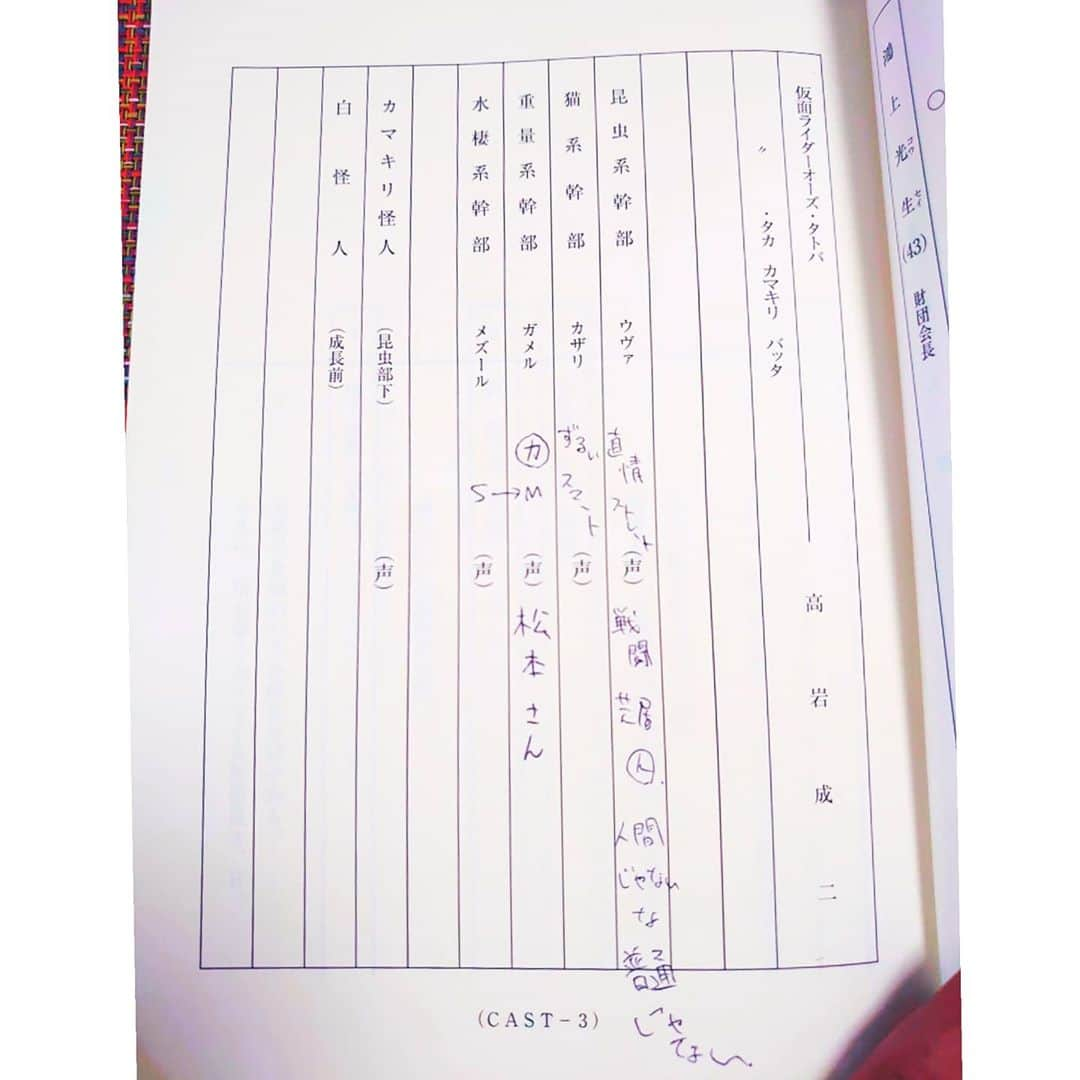 鴻上光生(43) 財団会長
コウ セイ
仮面ライダーオーズ・タトバ 高岩成二
〃 ・タカ カマキリ バッタ
昆虫系幹部 ウヴァ 直情 ストレート (声) 戦闘 芝居 人間じゃないな 普通じゃない
猫系幹部 カザリ ずるい スマート (声)
重量系幹部 ガメル カ M (声) 松本さん
水棲系幹部 メズール S→ (声)
カマキリ怪人 (昆虫部下) (声)
白怪人 (成長前)
(CAST-3)